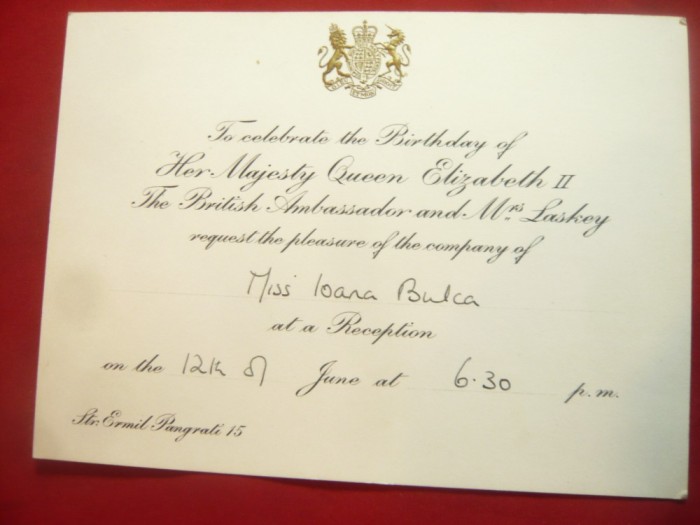 To celebrate the Birthday of
Her Majesty Queen Elizabeth II
The British Ambassador and Mrs Laskey
request the pleasure of the company of
Miss Ioana Bulca
at a Reception
on the 12th of June at 6.30 p.m.
Str. Ermil Pangrati 15